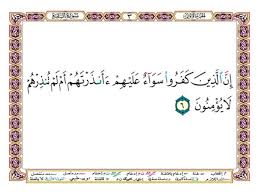 سورة البقرة
٣
إِنَّ ٱلَّذِينَ كَفَرُوا۟ سَوَآءٌ عَلَيْهِمْ ءَأَنذَرْتَهُمْ أَمْ لَمْ تُنذِرْهُمْ
لَا يُؤْمِنُونَ ٦